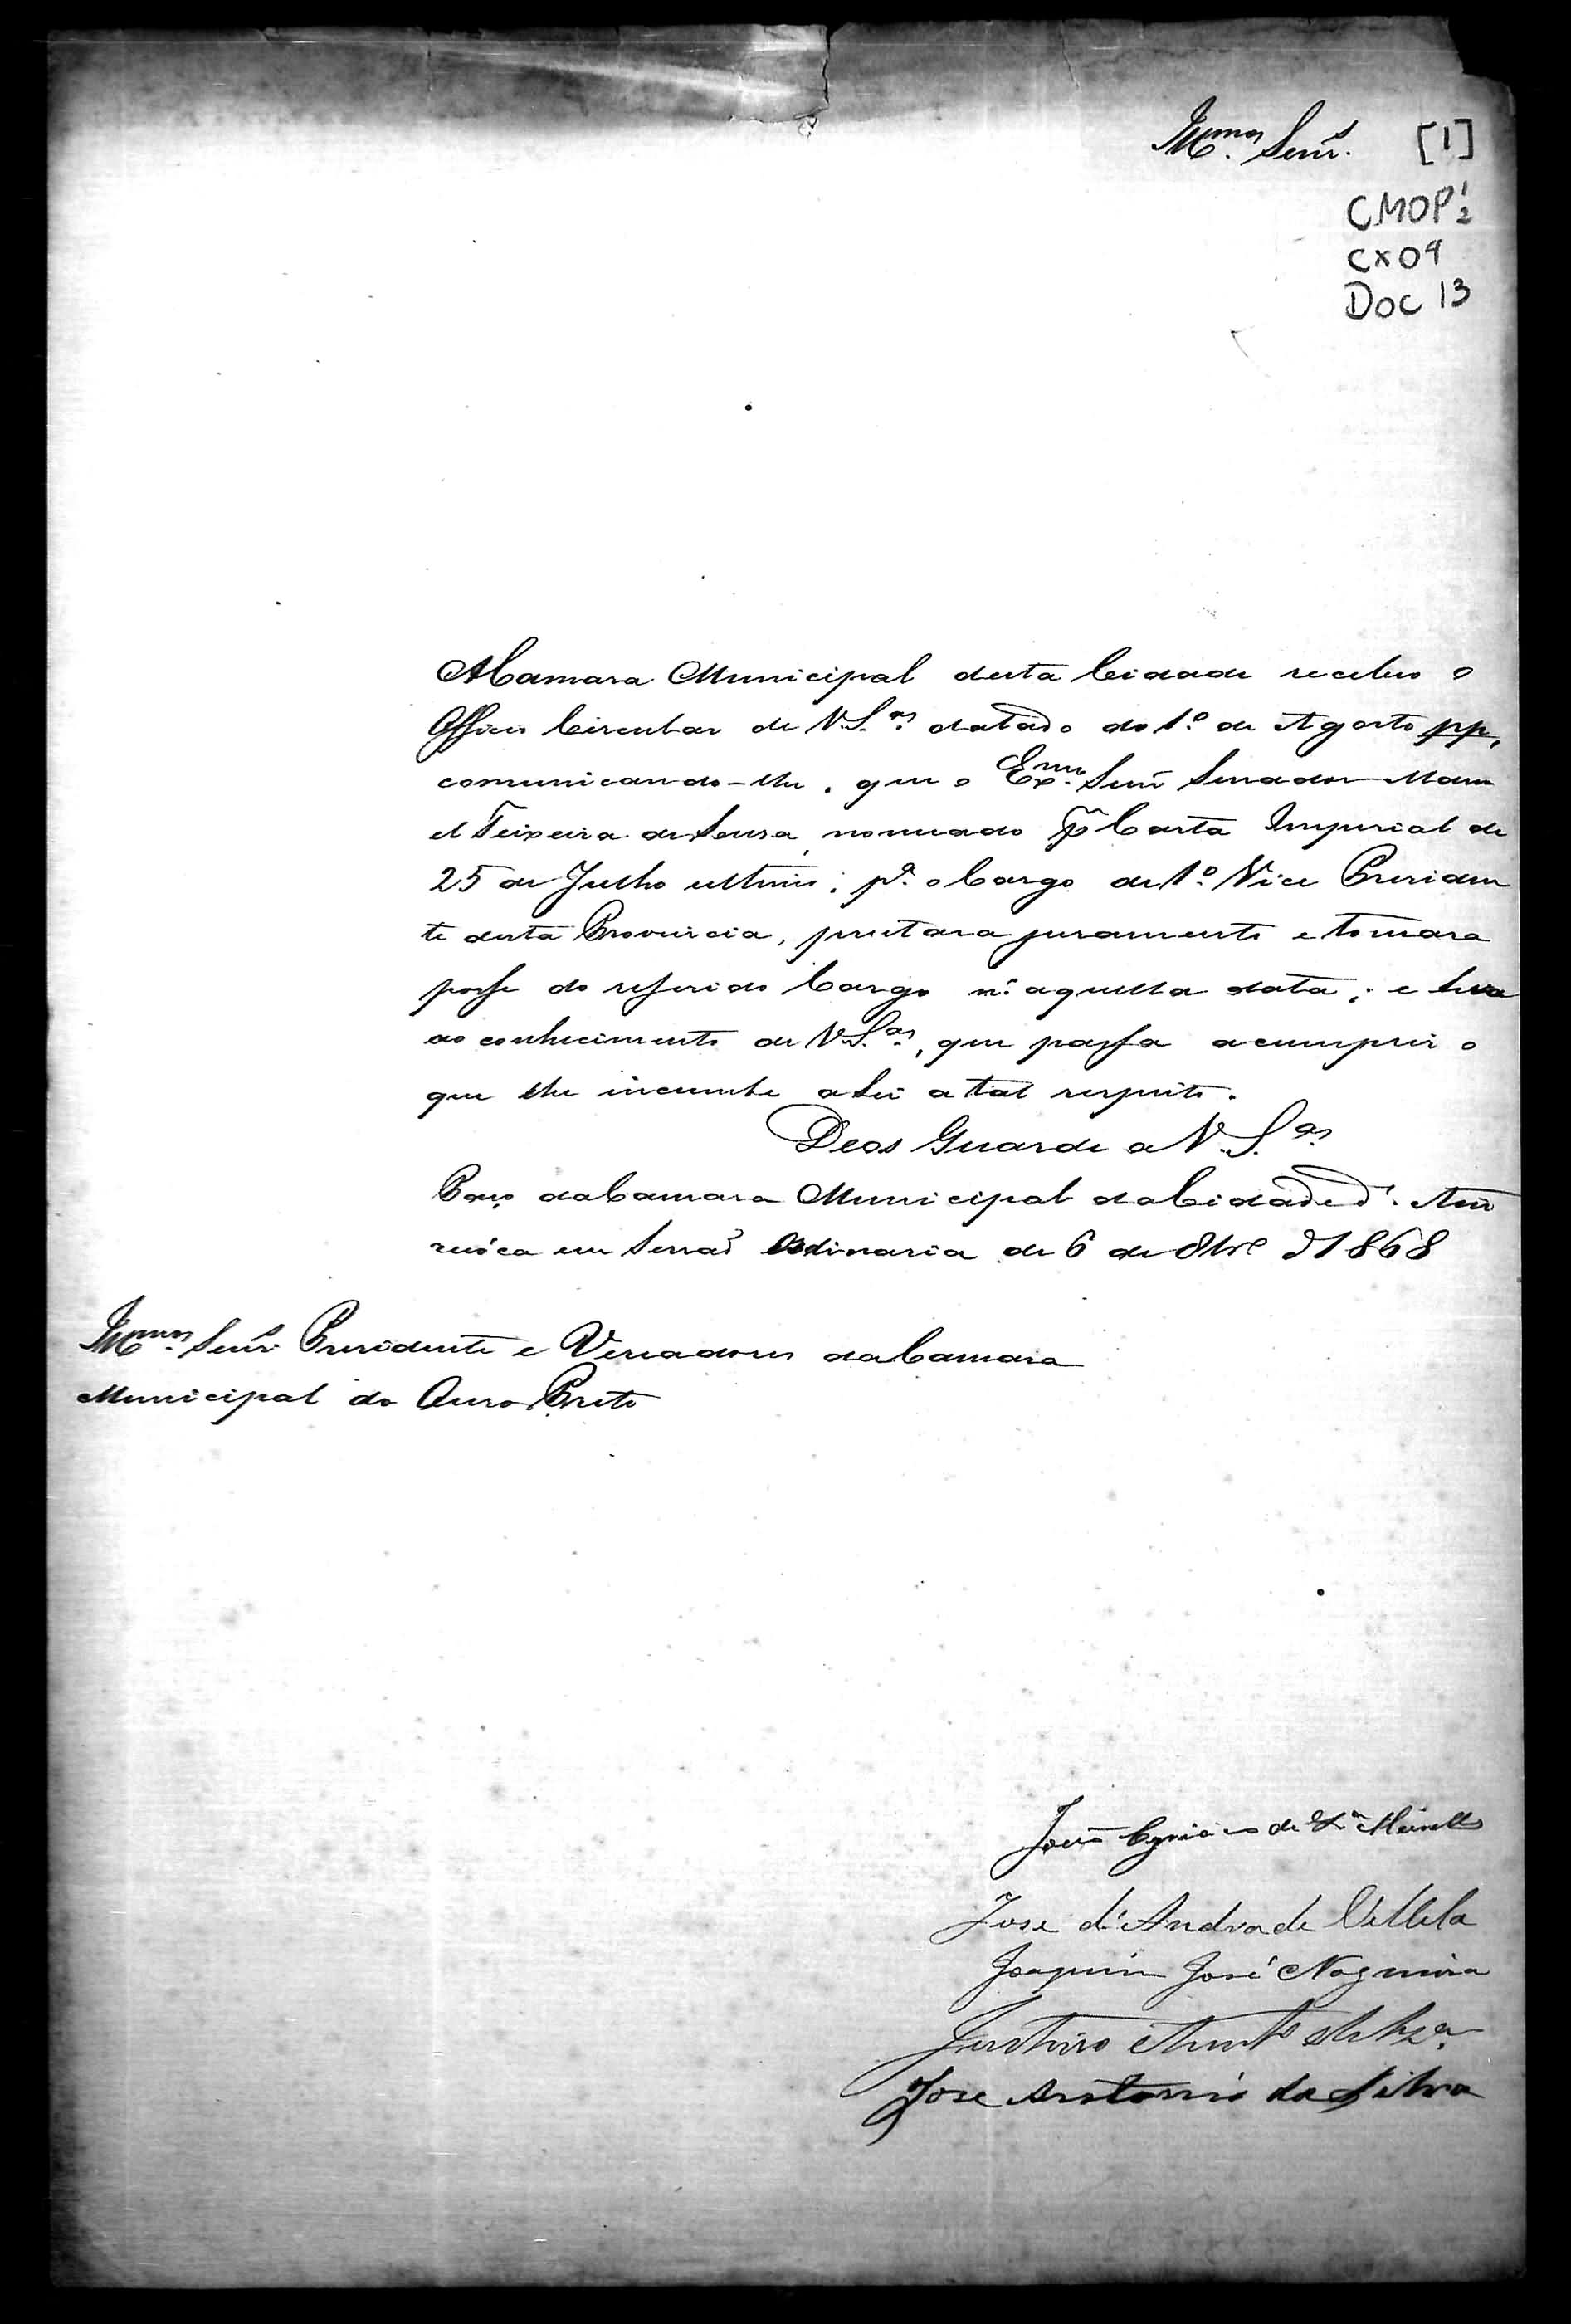 Ill.mos Senr.s [1]
CMOP 1/2
CX 04
Doc 13
A Camara Municipal desta Cidade recebeo o
Officio Circular de V. S.as datado do 1.º de Agosto pp,
comunicando-lhe, que o Ex.mo Senr Senador Mano
el Teixeira de Sousa, nomeado p Carta Imperial de
25 de Julho ultimo, p.ª o Cargo de 1.º Vice Presiden
te desta Provincia, prestara juramento e tomara
posse do referido Cargo n'aquella data; e leva
ao conhecimento de V. S.as, que passa a cumprir o
que lhe incumbe a Lei a tal respeito.
Deos Guarde a V. S.as
Paço da Camara Municipal da Cidade d' Ayu
ruóca em Sessaõ Ordinaria de 6 de 8bre d 1868
Ill.mos Senr.s Presidente e Vereadores da Camara
Municipal do Ouro Preto
João de Meirelles
Jose d'Andrade Villela
Joaquim José Nogueira
Justino
Jose Antonio da Silva